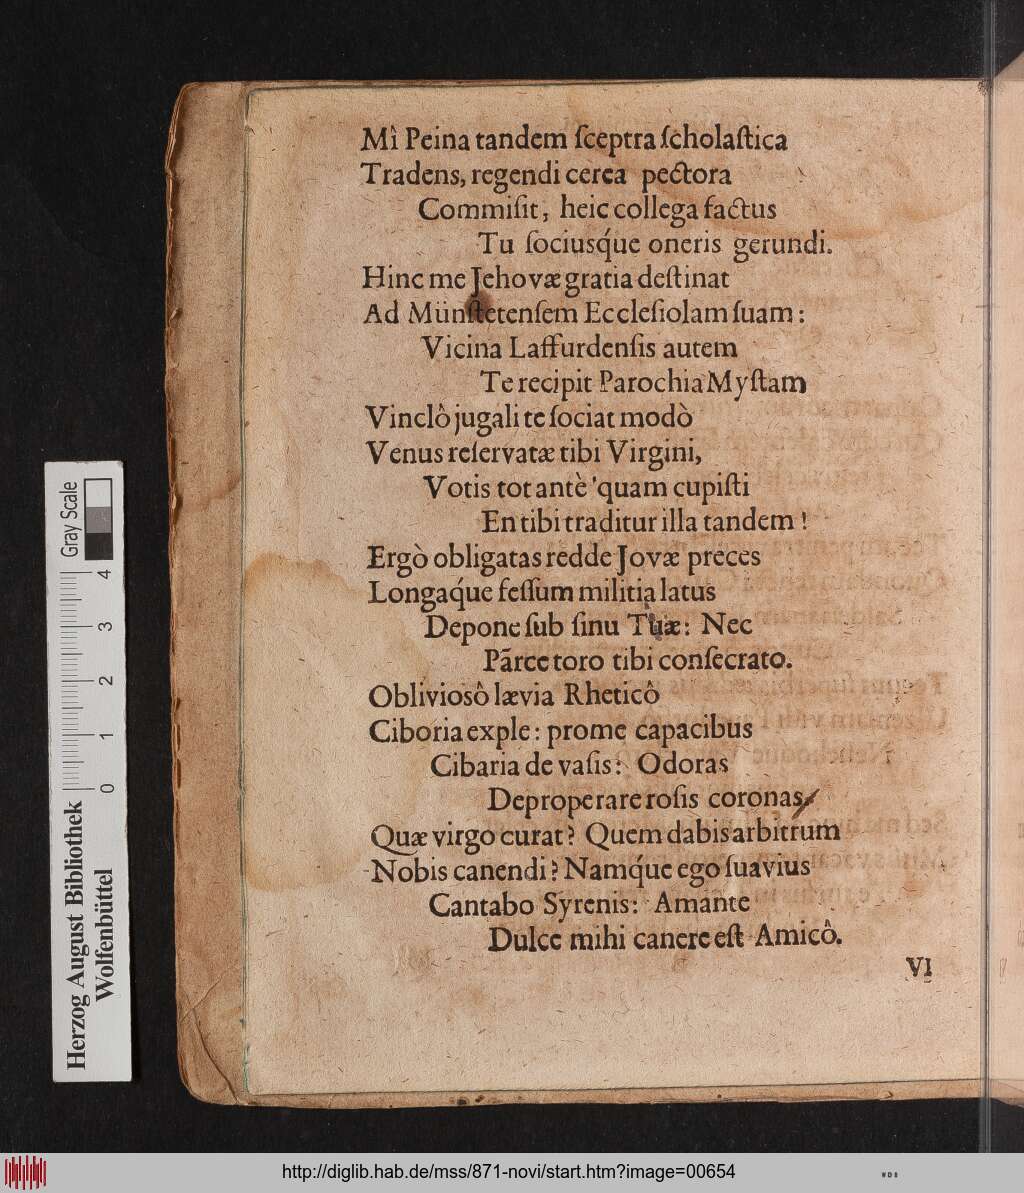 Mî Peina tandem ſceptra ſcholaſtica
Tradens, regendi cerea pectora
Commiſit, heic collega factus
Tu ſociusq́ue oneris gerundi.
Hinc me Jehovæ gratia deſtinat
Ad Münſtetenſem Eccleſiolam ſuam:
Vicina Laffurdenſis autem
Te recipit Parochia Myſtam
Vinclô jugali te ſociat modò
Venus reſervatæ tibi Virgini,
Votis tot antè 'quam cupiſti
En tibi traditur illa tandem!
Ergò obligatas redde Jovæ preces
Longaq́ue feſſum militia latus
Depone ſub ſinu Tuæ: Nec
Pãrce toro tibi conſecrato.
Obliviosô lævia Rheticô
Ciboria exple: prome capacibus
Cibaria de vaſis: Odoras
Deproperare roſis coronas
Quæ virgo curat? Quem dabis arbitrum
Nobis canendi? Namq́ue ego ſuavius
Cantabo Syrenis: Amante
Dulce mihi canere eſt Amicô.
VI
Gray Scale
4
3
2
1
0
Herzog August Bibliothek
Wolfenbüttel
http://diglib.hab.de/mss/871-novi/start.htm?image=00654
WDB